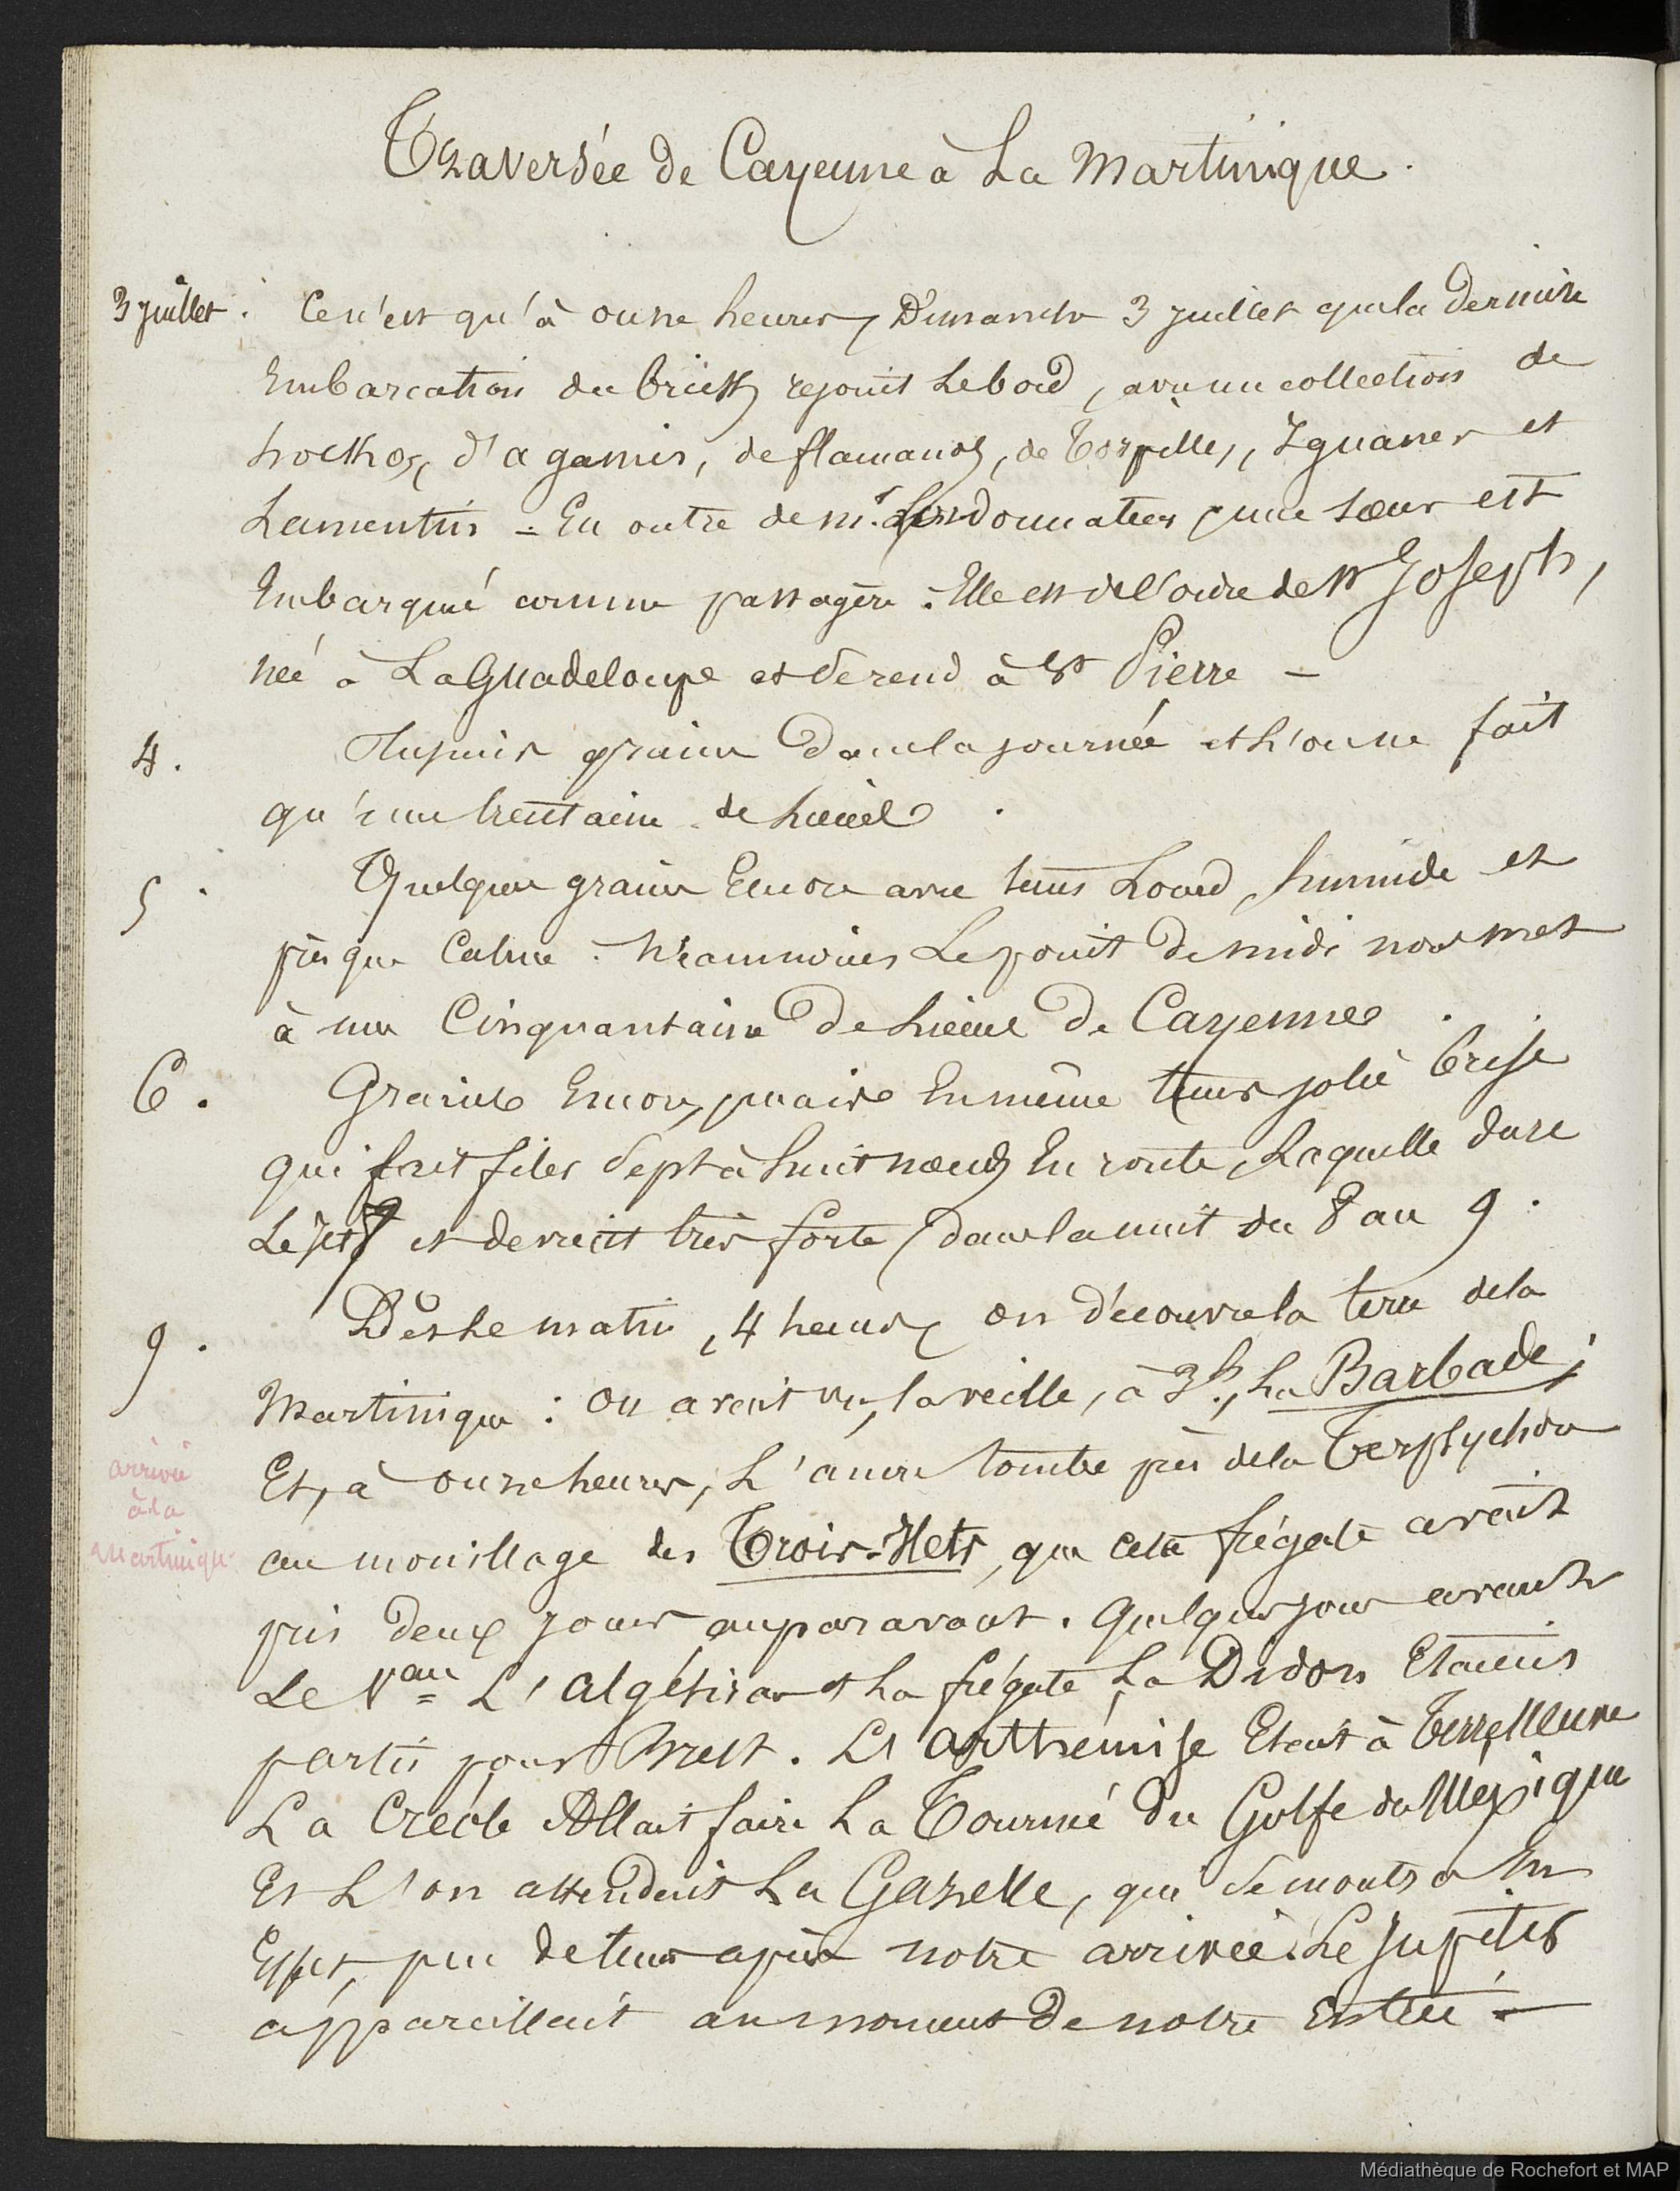 Traversée de Cayenne à La Martinique.
3 juillet. Ce n'est qu'à onze heures, Dimanche 3 juillet que la dernière
Embarcation du brick rejoint le bord, avec une collection de
hockos, d'agamis, de flamands, de Torpilles, Iguanes et
Lamentins = En outre de mr. une sœur est
Embarquée comme passagère. Elle est de l'ordre de St Joseph,
née à La Guadeloupe et se rend à St Pierre —
4. Toujours grains dans la journée et l'on ne fait
qu'une trentaine de lieues.
5. Quelques grains Encore avec tems Lourd, humide et
presque Calme. Néanmoins Le point de midi nous met
à une Cinquantaine de lieues de Cayenne.
6. Grains Encore, mais En même tems jolie brise
qui fait filer sept à huit nœuds En route, Laquelle dure
Le 7 et devient très forte, dans la nuit du 8 au 9.
9. Dès le matin, 4 heures, on découvre la terre de la
Martinique : on avait vu, la veille, à 3h., La Barbade;
arrivée
à la
Martinique
Et, à onze heures, L'ancre tombe près de la Terpsychore
au mouillage des Trois-Ilets, que cette frégate avait
pris deux jours auparavant. Quelques jours avant
Le Vau L'Algésiras et La frégate La Didon Etaient
partis pour Brest. L'Arthémise Etait à Terre Neuve
La Créole Allait faire La Tournée du Golfe du Mexique
Et L'on attendait La Gazelle, qui se montra En
Effet, peu de tems après notre arrivée. Le Jupiter
appareillait au moment de notre Entrée —
Médiathèque de Rochefort et MAP